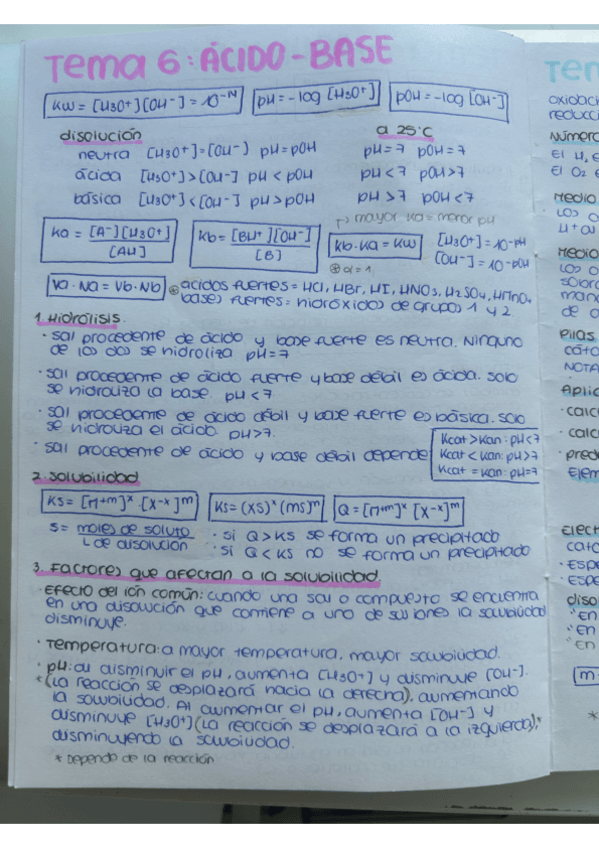 Tema 6: ÁCIDO-BASE
Kw = [H3O+][OH-] = 10-14
pH = -log [H3O+]
pOH = -log [OH-]
disolución
a 25°C
neutra [H3O+]=[OH-] pH=pOH pH=7 pOH=7
ácida [H3O+]>[OH-] pH < pOH pH<7 pOH>7
básica [H3O+]<[OH-] pH > pOH pH >7 pOH<7
mayor Ka = menor pH
Ka = [A-][H3O+] / [AH]
Kb = [BH+][OH-] / [B]
Kb · Ka = Kw
[H3O+] = 10-pH
[OH-] = 10-pOH
α=1
Va · Na = Vb · Nb
ácidos fuertes = HCl, HBr, HI, HNO3, H2SO4, HMnO4
bases fuertes = hidróxidos de grupos 1 y 2
1. Hidrólisis.
· Sal procedente de ácido y base fuerte es neutra. Ninguno
de los dos se hidroliza pH=7
· Sal procedente de ácido fuerte y base débil es ácida. Solo
se hidroliza la base. pH<7
· Sal procedente de ácido débil y base fuerte es básica. Solo
se hidroliza el ácido. pH>7.
· Sal procedente de ácido y base débil depende
Kcat > Kan: pH<7
Kcat < Kan: pH>7
Kcat = Kan: pH=7
2. Solubilidad
Ks = [M+m]x · [X-x]m
Ks = (xs)x (ms)m
Q = [M+m]x [X-x]m
S = moles de soluto / L de disolución
· Si Q > Ks se forma un precipitado
· Si Q < Ks no se forma un precipitado
3. Factores que afectan a la solubilidad
· Efecto del ión común: cuando una sal o compuesto se encuentra
en una disolución que contiene a uno de sus iones la solubilidad
disminuye.
· Temperatura: a mayor temperatura, mayor solubilidad.
· pH: al disminuir el pH, aumenta [H3O+] y disminuye [OH-].
*(La reacción se desplazará hacia la derecha), aumentando
la solubilidad. Al aumentar el pH, aumenta [OH-] y
disminuye [H3O+] (La reacción se desplazará a la izquierda),*
disminuyendo la solubilidad.
* Depende de la reacción
Tem
oxidació
reducci
Número
El H, e
El O2 e
Medio
H+ al
Medio
Pilas
cáto
NOTA
Aplic
· calcu
· calc
· pred
Elem
Elect
cato
· Espe
· Espe
diso
"En
"En
"En
m
*